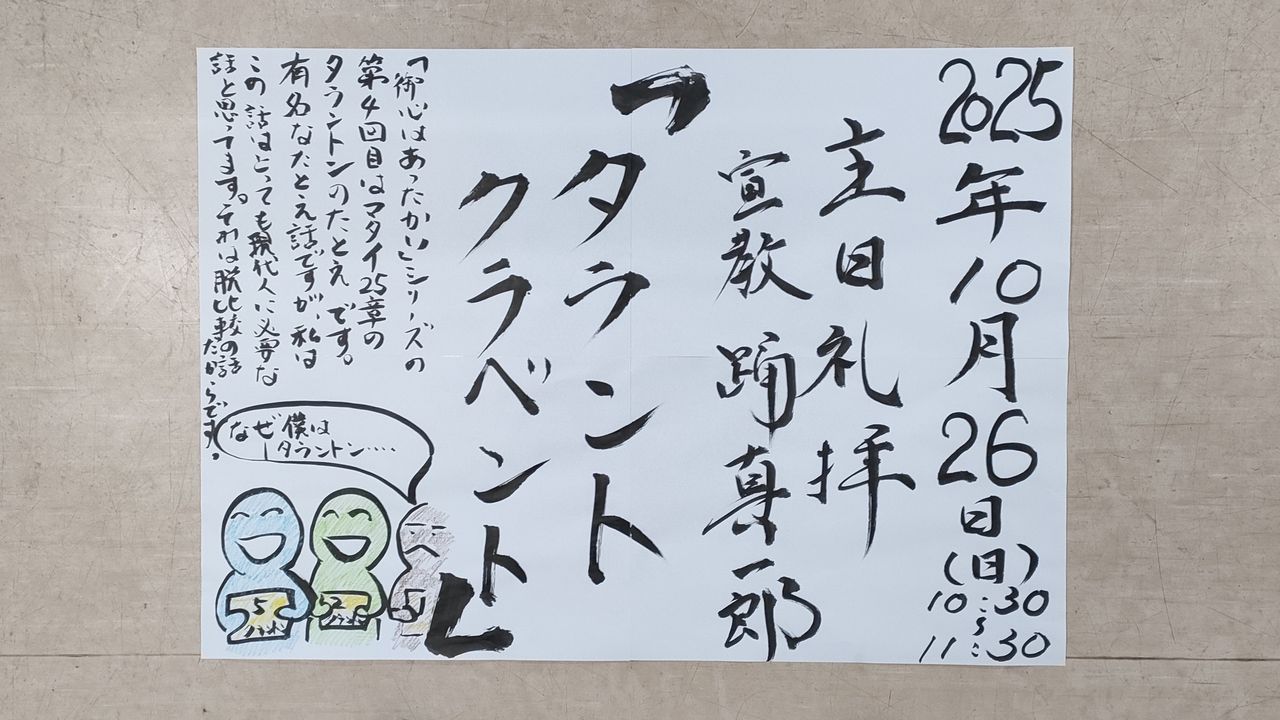 2025年10月26日(日)
10:30
〜
11:30
主日礼拝
宣教 踊真一郎
「タラント
クラベント」
「御心はあったかい」シリーズの
第4回目はマタイ25章の
タラントンのたとえです。
有名なたとえ話ですが、私は
この話はとっても現代人に必要な
話と思ってます。それは脱比較の話
だからです。
なぜ僕は
1タラントン‥‥
5
タラントン
2
タラントン
1